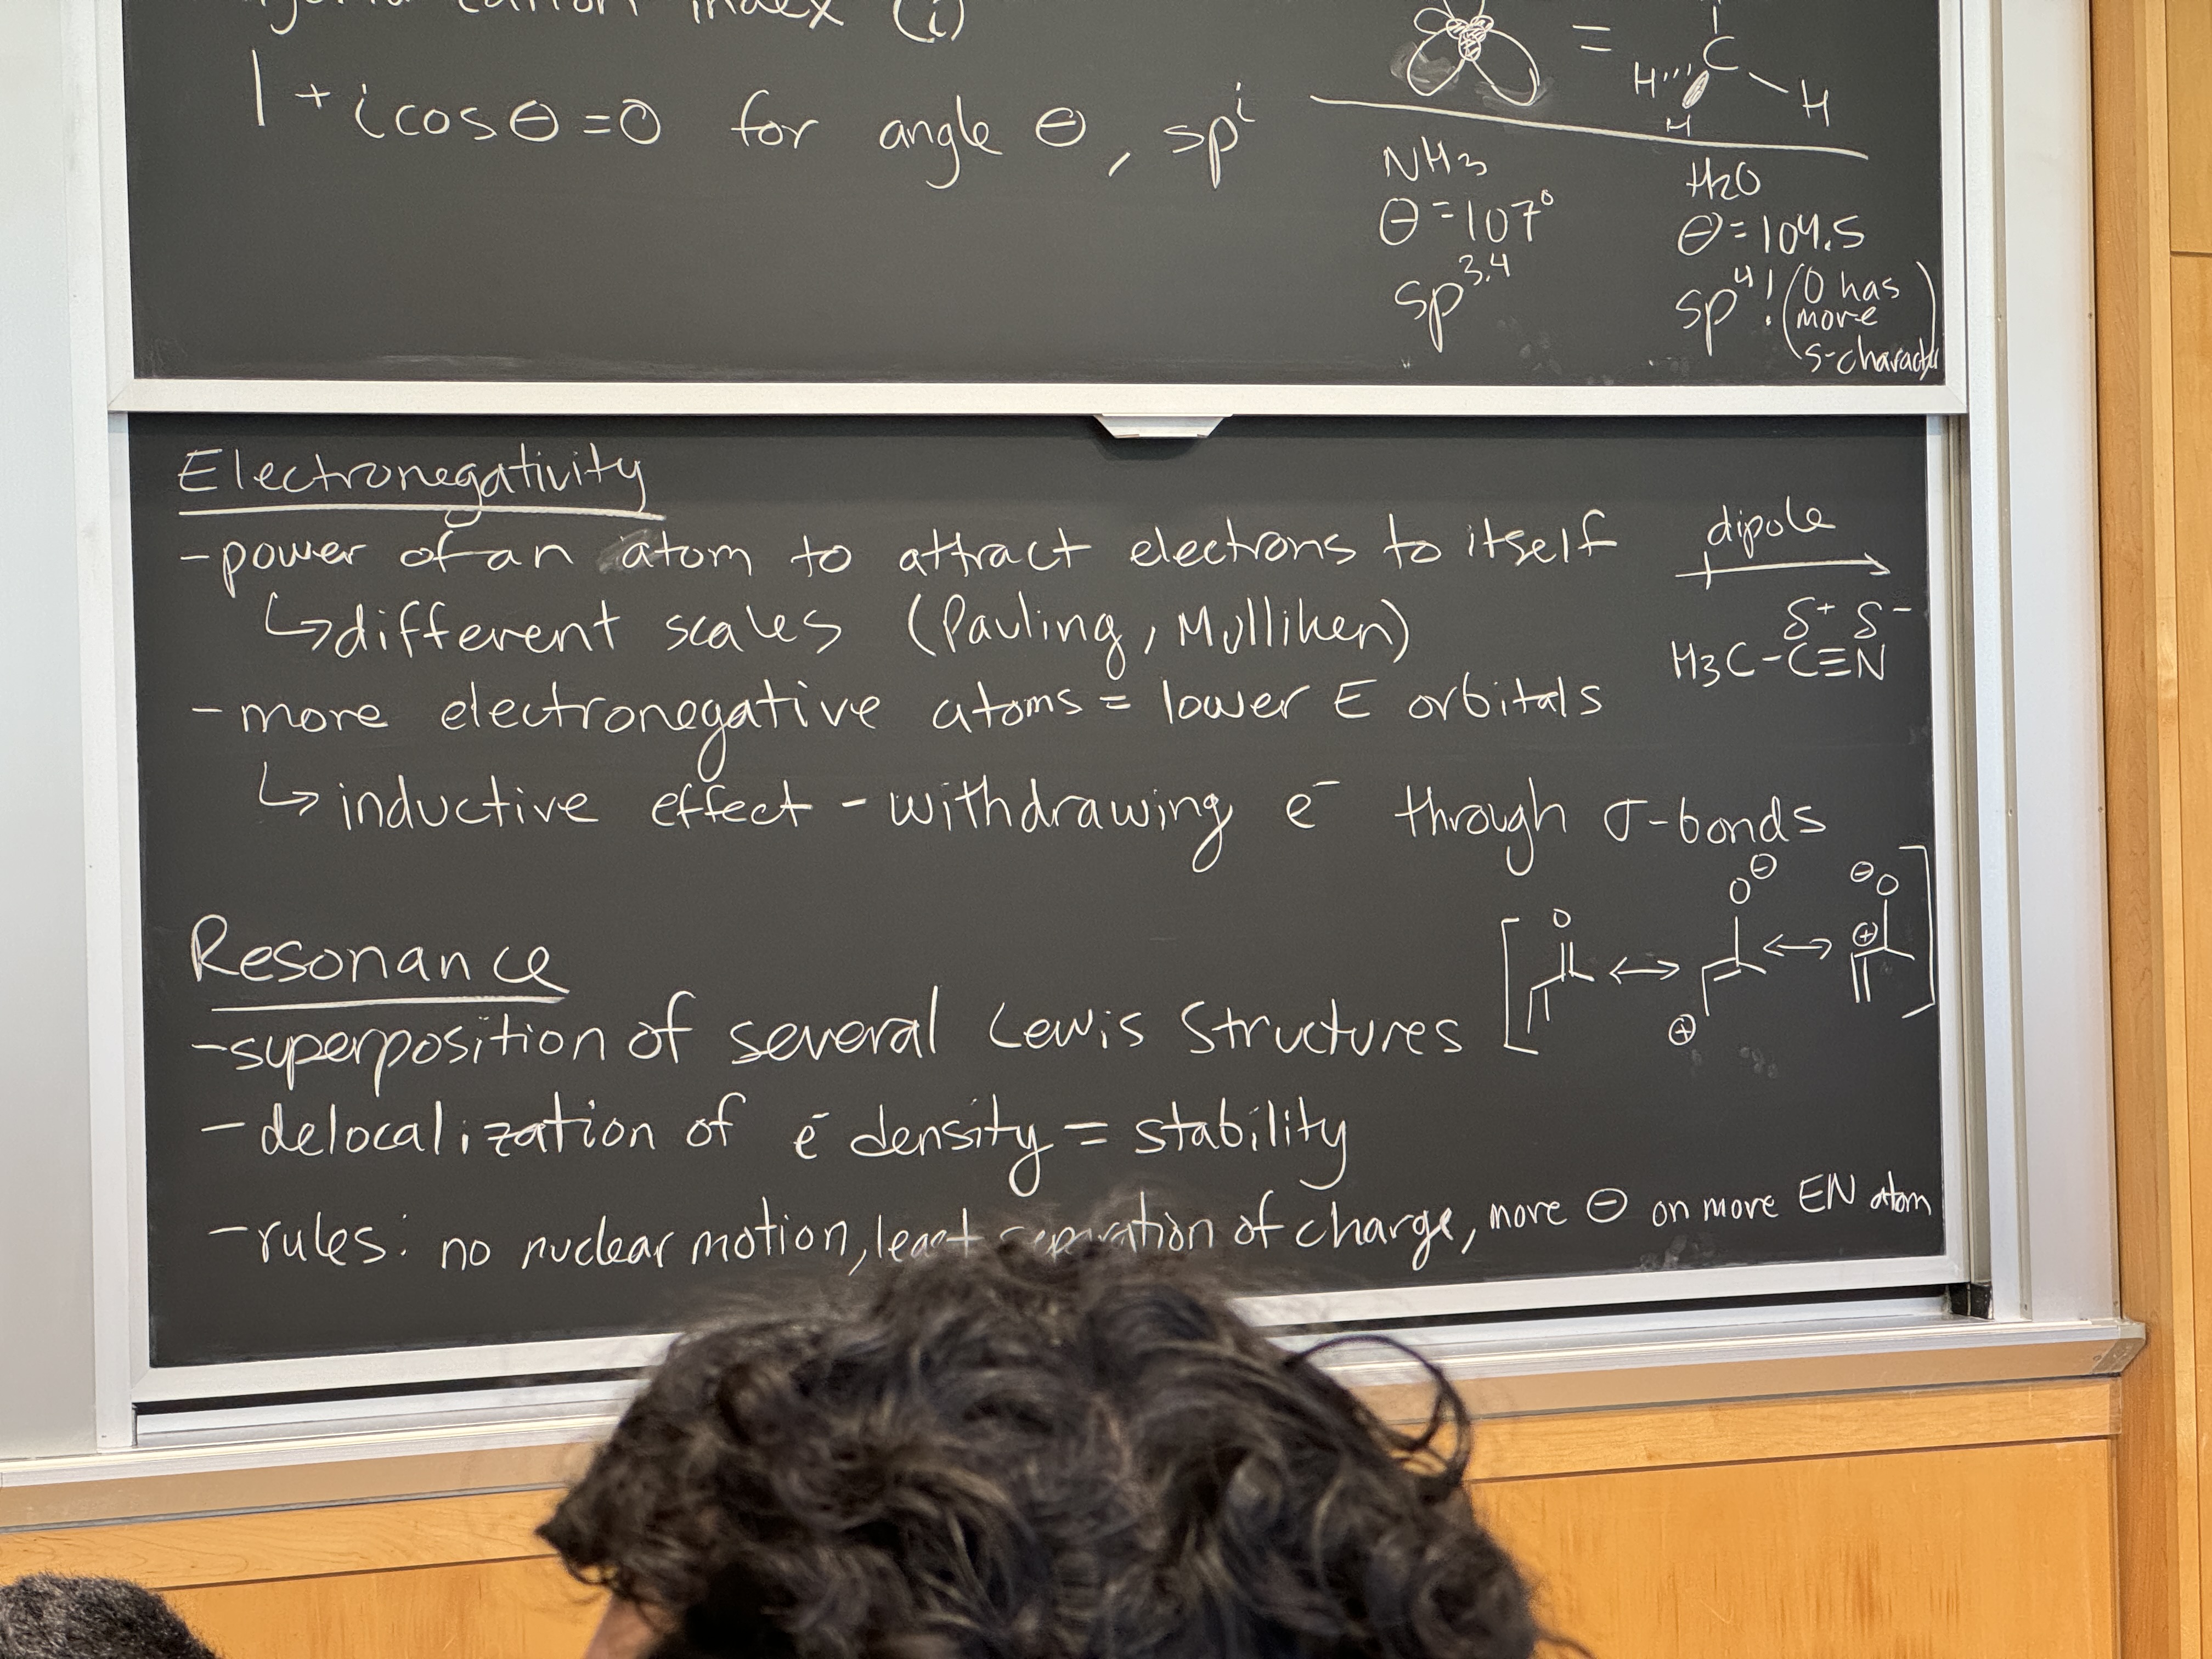 cation index (i)
1 + i cos θ = 0 for angle θ, spⁱ
= C H H H
NH3
θ = 107°
sp^3.4
H2O
θ = 104.5
sp^4! (O has more s-character)
Electronegativity
- power of an atom to attract electrons to itself
↳ different scales (Pauling, Mulliken)
- more electronegative atoms = lower E orbitals
↳ inductive effect - withdrawing e⁻ through σ-bonds
dipole
δ+ δ-
H3C-C≡N
Resonance
- superposition of several Lewis Structures
[ O ↔ O ⊖ ⊕ ↔ ⊖ O ⊕ ]
- delocalization of e⁻ density = stability
- rules: no nuclear motion, least separation of charge, more ⊖ on more EN atom